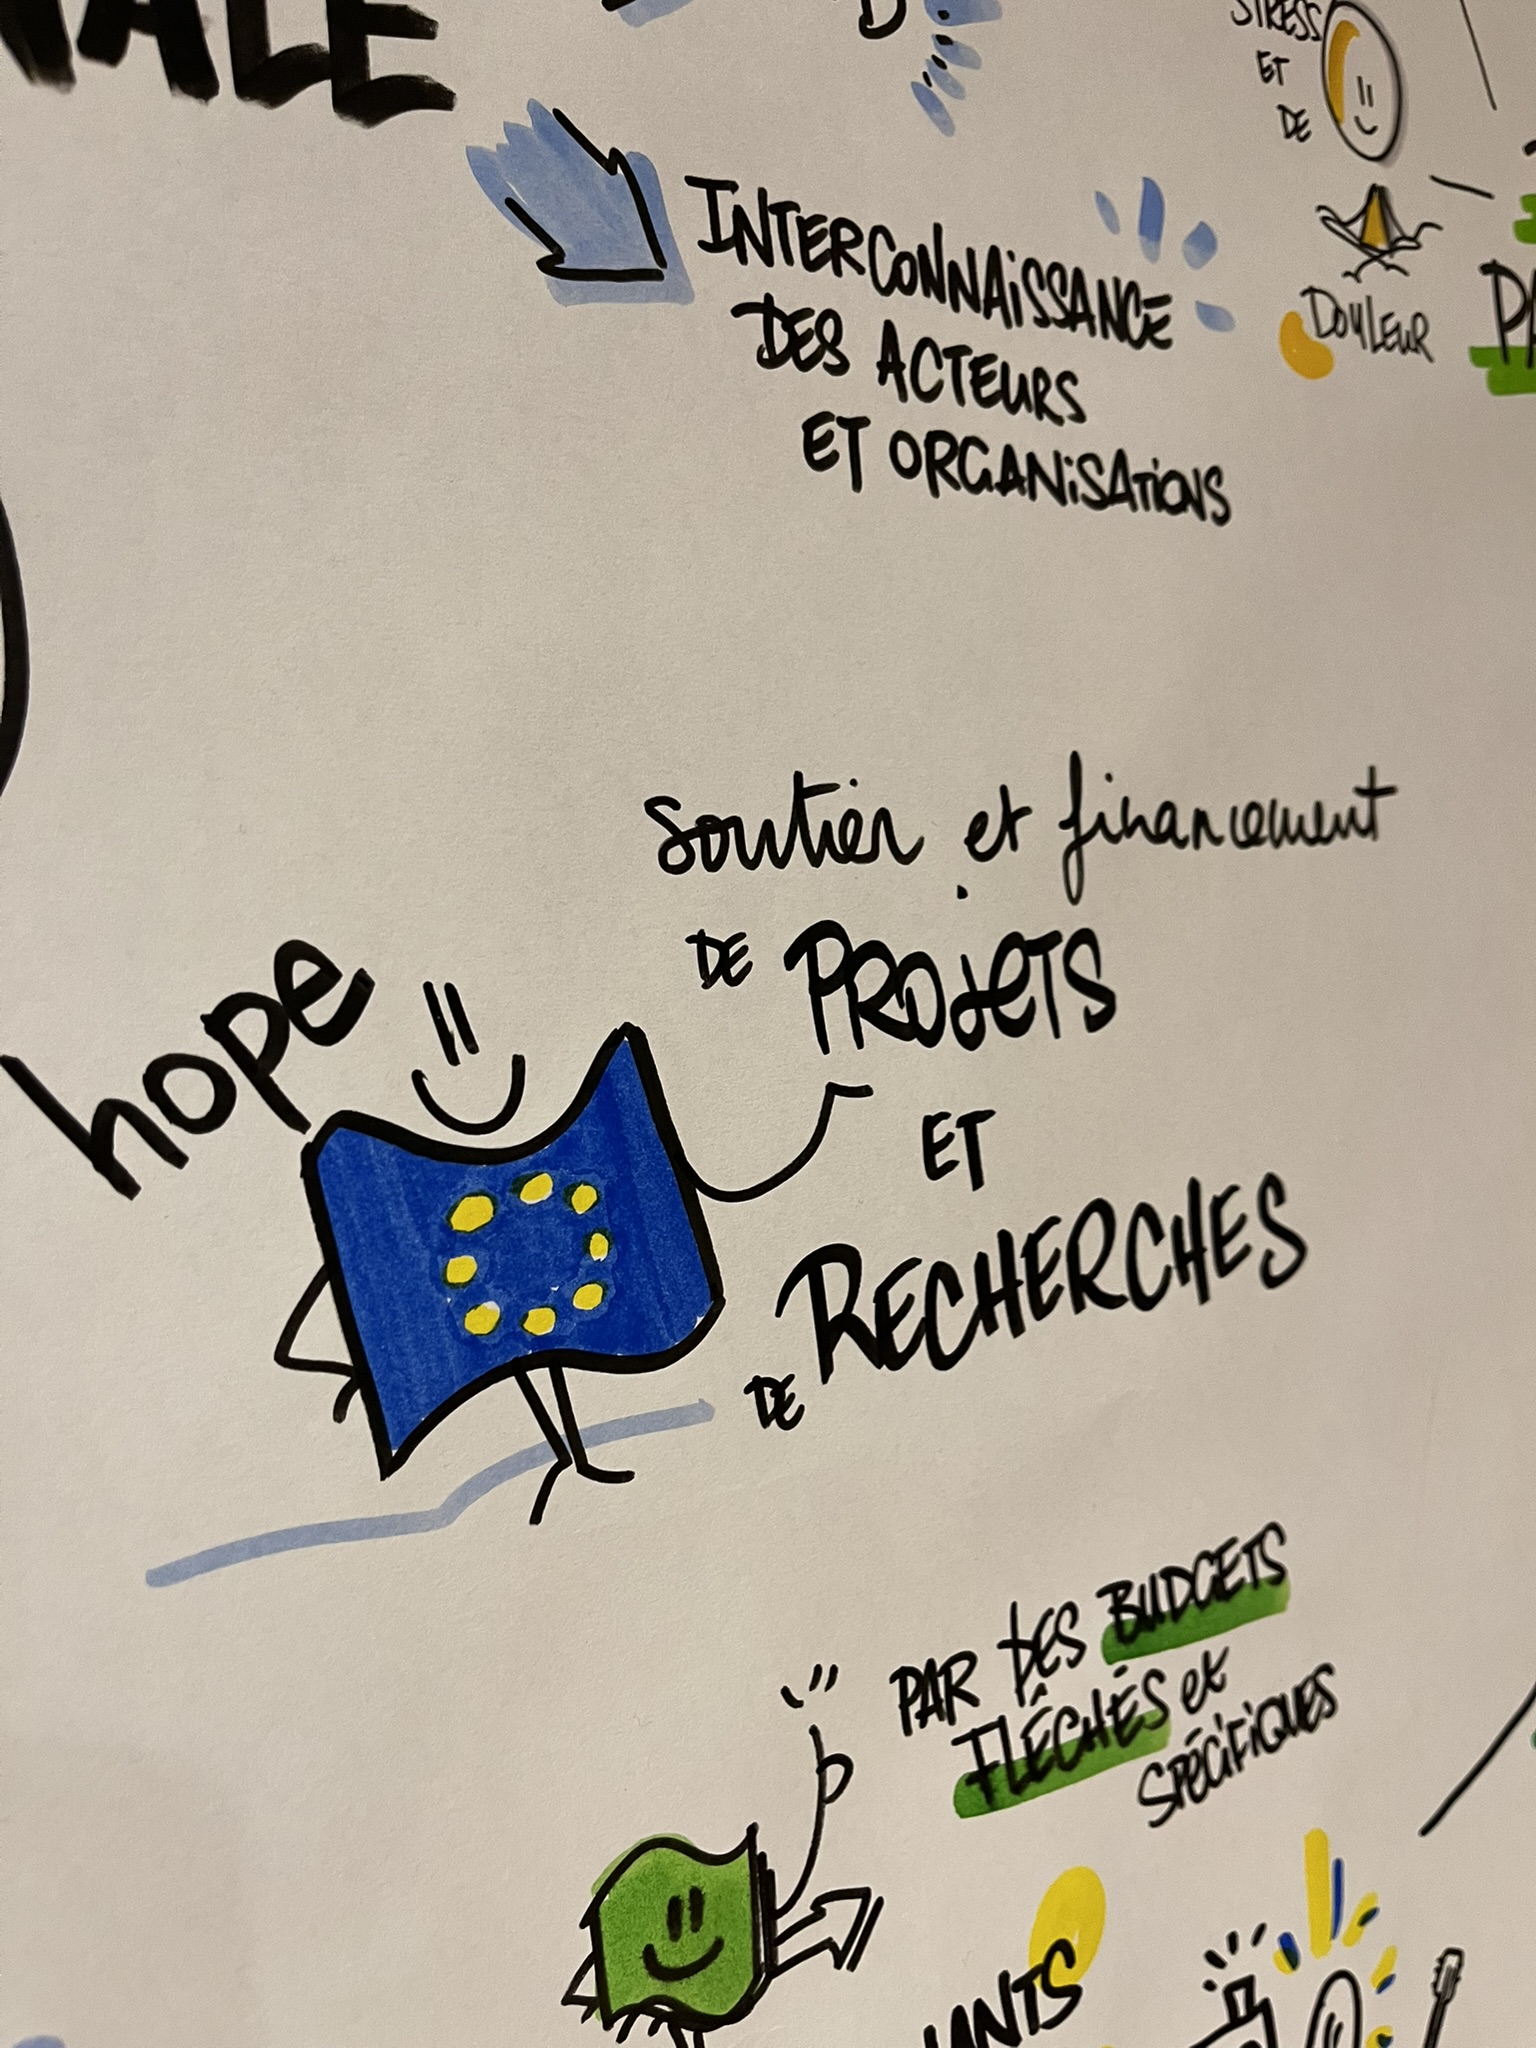 STRESS
ET
DE
DOULEUR
INTERCONNAiSSANCE
DES ACTEURS
ET ORGANiSATiONS
Soutien et financement
DE PROJETS
ET
DE RECHERCHES
hope
PAR DES BUDGETS
FLÉCHÉS et
SPÉCIFIQUES